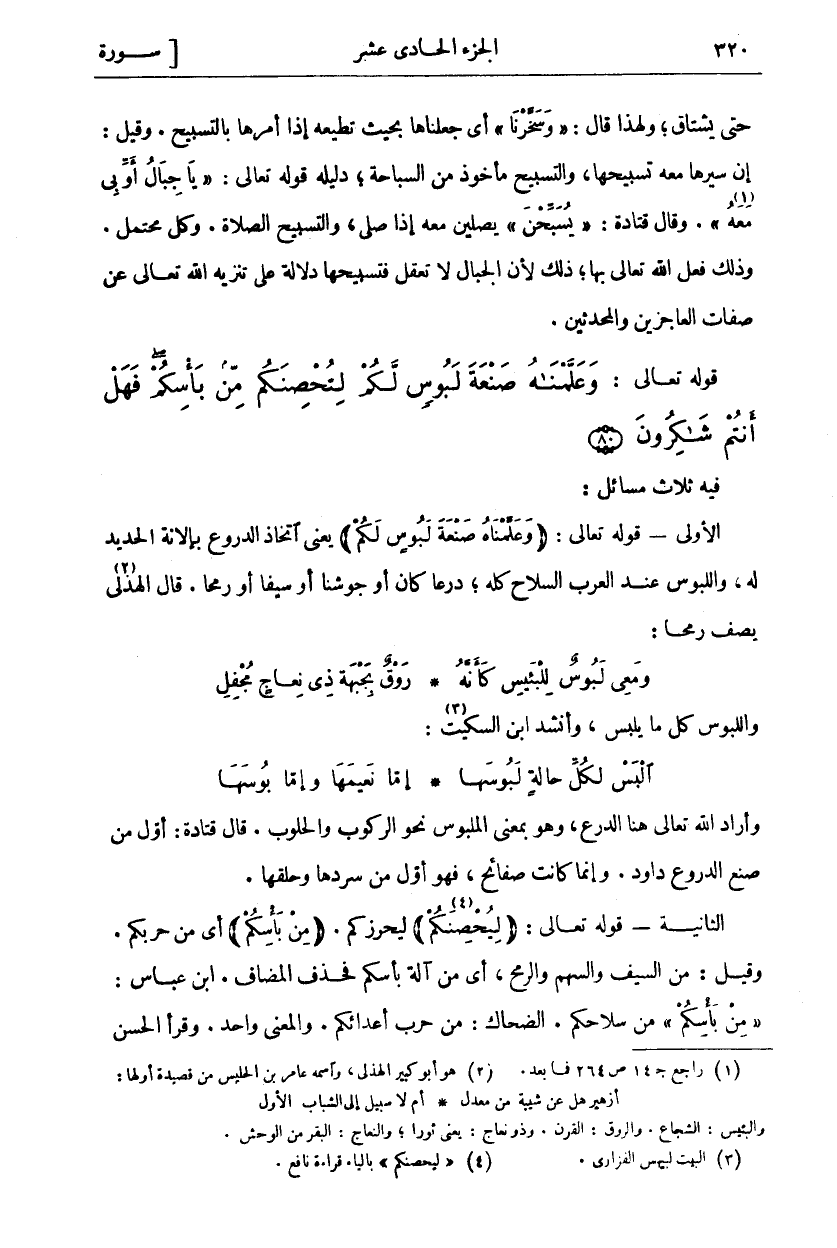 ٣٢٠ الجزء الحادى عشر [ ســورة
حتى يشتاق؛ ولهذا قال : « وَسَخَّرْنَا » أى جعلناها بحيث تطيعه إذا أمرها بالتسبيح . وقيل :
إن سيرها معه تسبيحها، والتسبيح مأخوذ من السباحة؛ دليله قوله تعالى : « يَا جِبَالُ أَوِّبِى
مَعَهُ (١) » . وقال قتادة : « يُسَبِّحْنَ » يصلين معه إذا صلى، والتسبيح الصلاة . وكل محتمل .
وذلك فعل الله تعالى بها؛ ذلك لأن الجبال لا تعقل فتسبيحها دلالة على تنزيه الله تعــالى عن
صفات العاجزين والمحدثين .
قوله تعــالى : وَعَلَّمْنَـٰهُ صَنْعَةَ لَبُوسٍ لَّكُمْ لِتُحْصِنَكُم مِّنۢ بَأْسِكُمْ ۖ فَهَلْ
أَنتُمْ شَـٰكِرُونَ ۝٨٠
فيه ثلاث مسائل :
الأولى — قوله تعالى : ﴿ وَعَلَّمْنَاهُ صَنْعَةَ لَبُوسٍ لَكُمْ ﴾ يعنى ٱتخاذ الدروع بإلانة الحديد
له ، واللبوس عنــد العرب السلاح كله ؛ درعا كان أو جوشنا أو سيفا أو رمحا . قال الهذلى (٢)
يصف رمحــا :
ومَعِى لَبُوسٌ لِلْبَئِيسِ كَأنَّهُ * رَوْقٌ بِجَبْهَةِ ذِى نِعــاجٍ مُجْفِلِ
واللبوس كل ما يلبس ، وأنشد ابن السكيت (٣) :
ٱلْبَسْ لكُلِّ حالةٍ لَبُوسَهــا * إمّا نَعِيمَهَا وإمّا بُوسَهَــا
وأراد الله تعالى هنا الدرع، وهو بمعنى الملبوس نحو الركوب والحلوب . قال قتادة: أوّل من
صنع الدروع داود . وإنما كانت صفائح ، فهو أوّل من سردها وحلقها .
الثانيــة — قوله تعــالى : ﴿ لِيُحْصِنَكُمْ (٤) ﴾ ليحرزكم . ﴿ مِنْ بَأْسِكُمْ ﴾ أى من حربكم .
وقيــل : من السيف والسهم والرمح ، أى من آلة بأسكم فحــذف المضاف . ابن عبــاس :
« مِنْ بَأْسِكُمْ » من سلاحكم . الضحاك : من حرب أعدائكم . والمعنى واحد . وقرأ الحسن
(١) راجع جـ ١٤ ص ٢٦٤ فــا بعد . (٢) هو أبو كبير الهذلى ، وٱسمه عامر بن الحليس من قصيدة أولها :
أزهير هل عن شيبة من معدل * أم لا سبيل إلى الشباب الأول
والبئيس : الشجاع . والروق : القرن . وذو نعاج : يعنى ثورا ؛ والنعاج : البقر من الوحش .
(٣) البيت لبيهس الفزارى . (٤) « ليحصنكم » بالياء قراءة نافع .